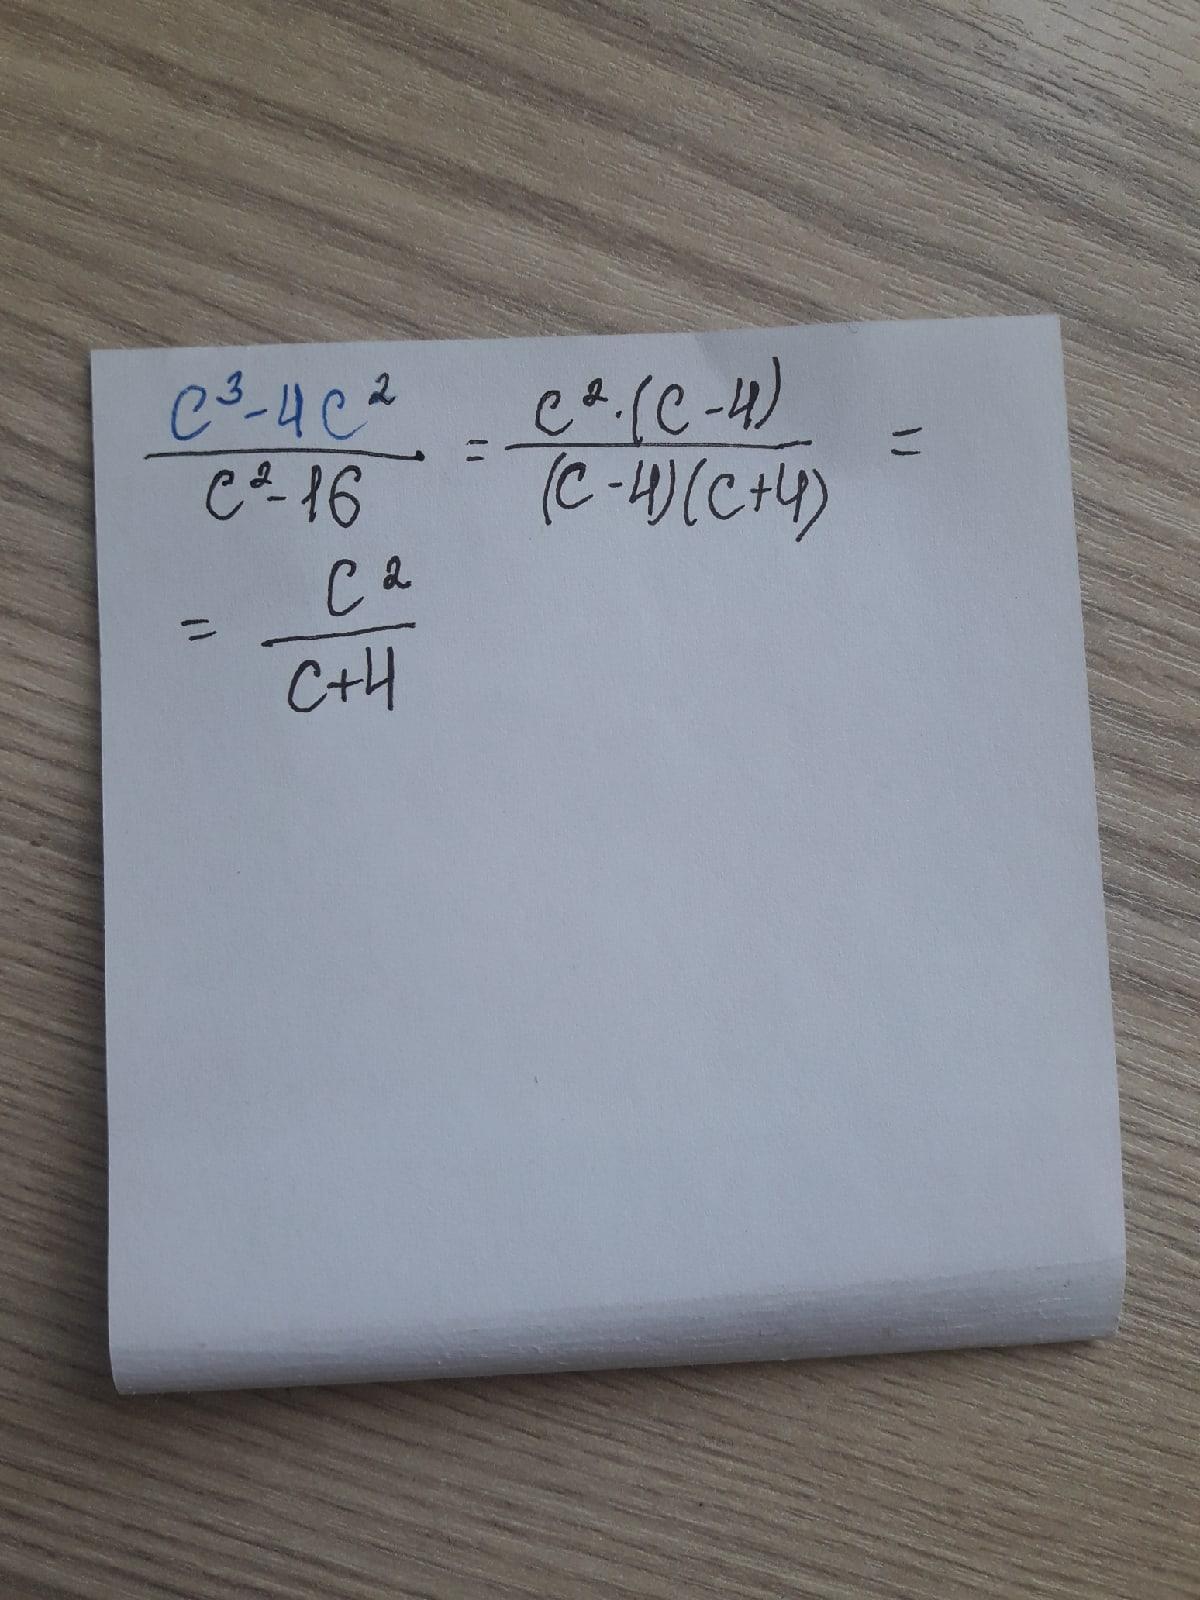 \frac{c^3-4c^2}{c^2-16} = \frac{c^2 \cdot (c-4)}{(c-4)(c+4)} =
= \frac{c^2}{c+4}